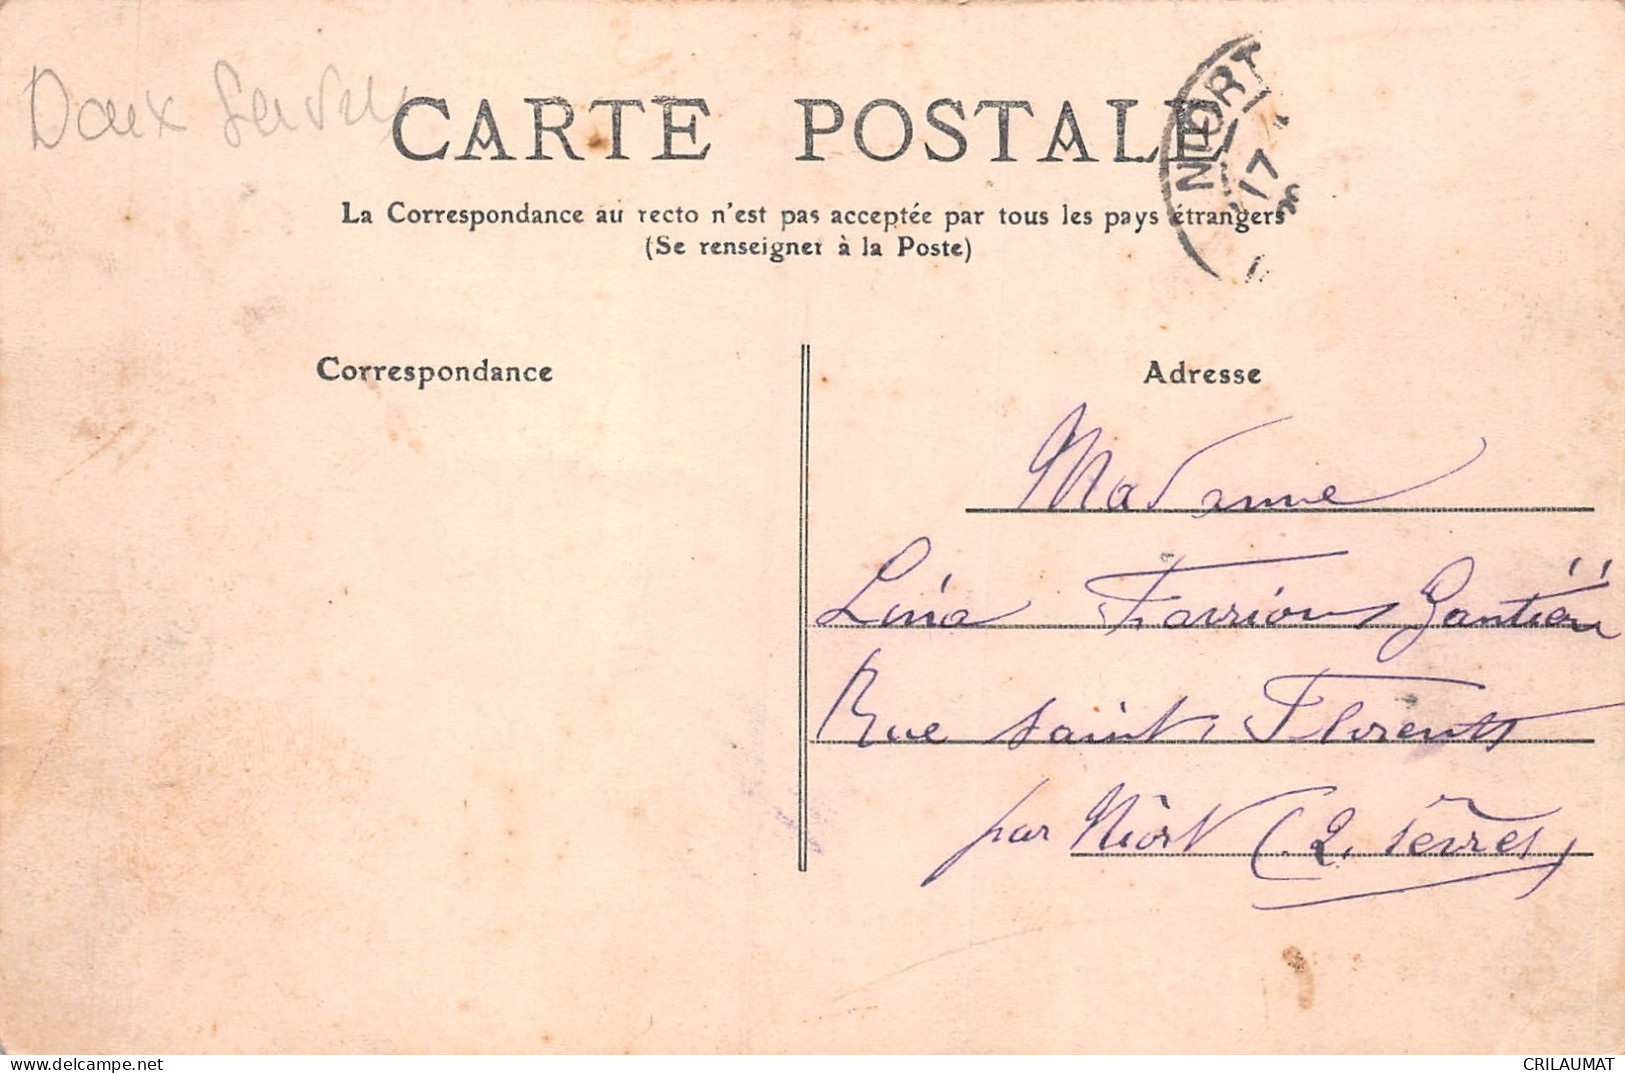 Deux Sevres
CARTE POSTALE
NIORT
17
La Correspondance au recto n'est pas acceptée par tous les pays étrangers
(Se renseigner à la Poste)
Correspondance
Adresse
Madame
Lina
Rue Saint Florent
par Niort (2. Sèvres)
delcampe.net
CRILAUMAT